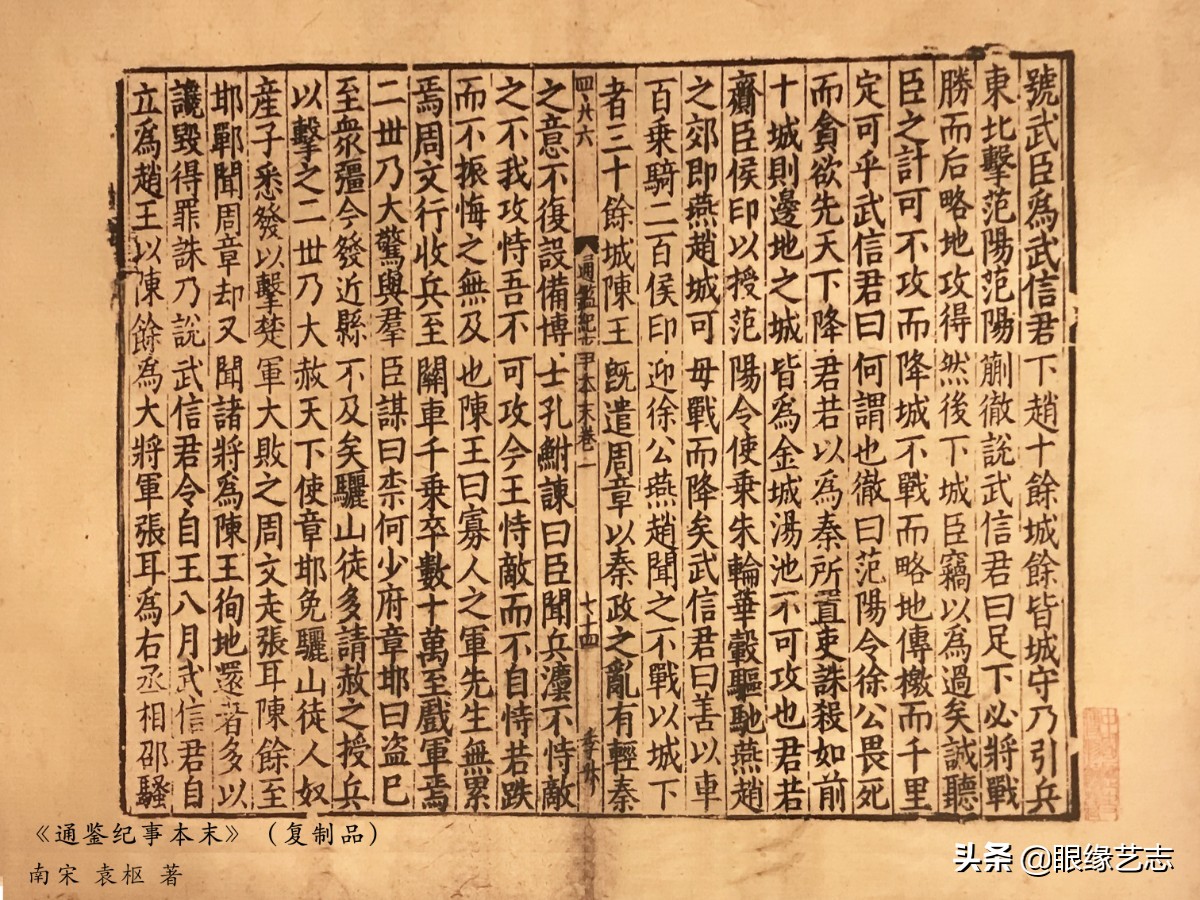 號武臣爲武信君下趙十餘城餘皆城守乃引兵
東北擊范陽范陽蒯徹說武信君曰足下必將戰
勝而后略地攻得然後下城臣竊以為過矣誠聽
臣之計可不攻而降城不戰而略地傳檄而千里
定可乎武信君曰何謂也徹曰范陽令徐公畏死
而貪欲先天下降君若以為秦所置吏誅殺如前
十城則邊地之城皆爲金城湯池不可攻也君若
齎臣侯印以授范陽令使乘朱輪華轂驅馳燕趙
之郊即燕趙城可毋戰而降矣武信君曰善以車
百乘騎二百侯印迎徐公燕趙聞之不戰以城下
者三十餘城陳王既遣周章以秦政之亂有輕秦
四卅六
通鑑紀事本末卷一
七十四
之意不復設備博士孔鮒諫曰臣聞兵灋不恃敵
之不我攻恃吾不可攻今王恃敵而不自恃若跌
而不振悔之無及也陳王曰寡人之軍先生無累
焉周文行收兵至關車千乘卒數十萬至戲軍焉
二世乃大驚與羣臣謀曰柰何少府章邯曰盜已
至衆彊今發近縣不及矣驪山徒多請赦之授兵
以擊之二世乃大赦天下使章邯免驪山徒人奴
産子悉發以擊楚軍大敗之周文走張耳陳餘至
邯鄲聞周章却又聞諸將為陳王徇地還者多以
讒毀得罪誅乃說武信君令自王八月武信君自
立爲趙王以陳餘為大將軍張耳爲右丞相邵騷
《通鉴纪事本末》（复制品）
南宋 袁枢 著
头条 @眼缘艺志